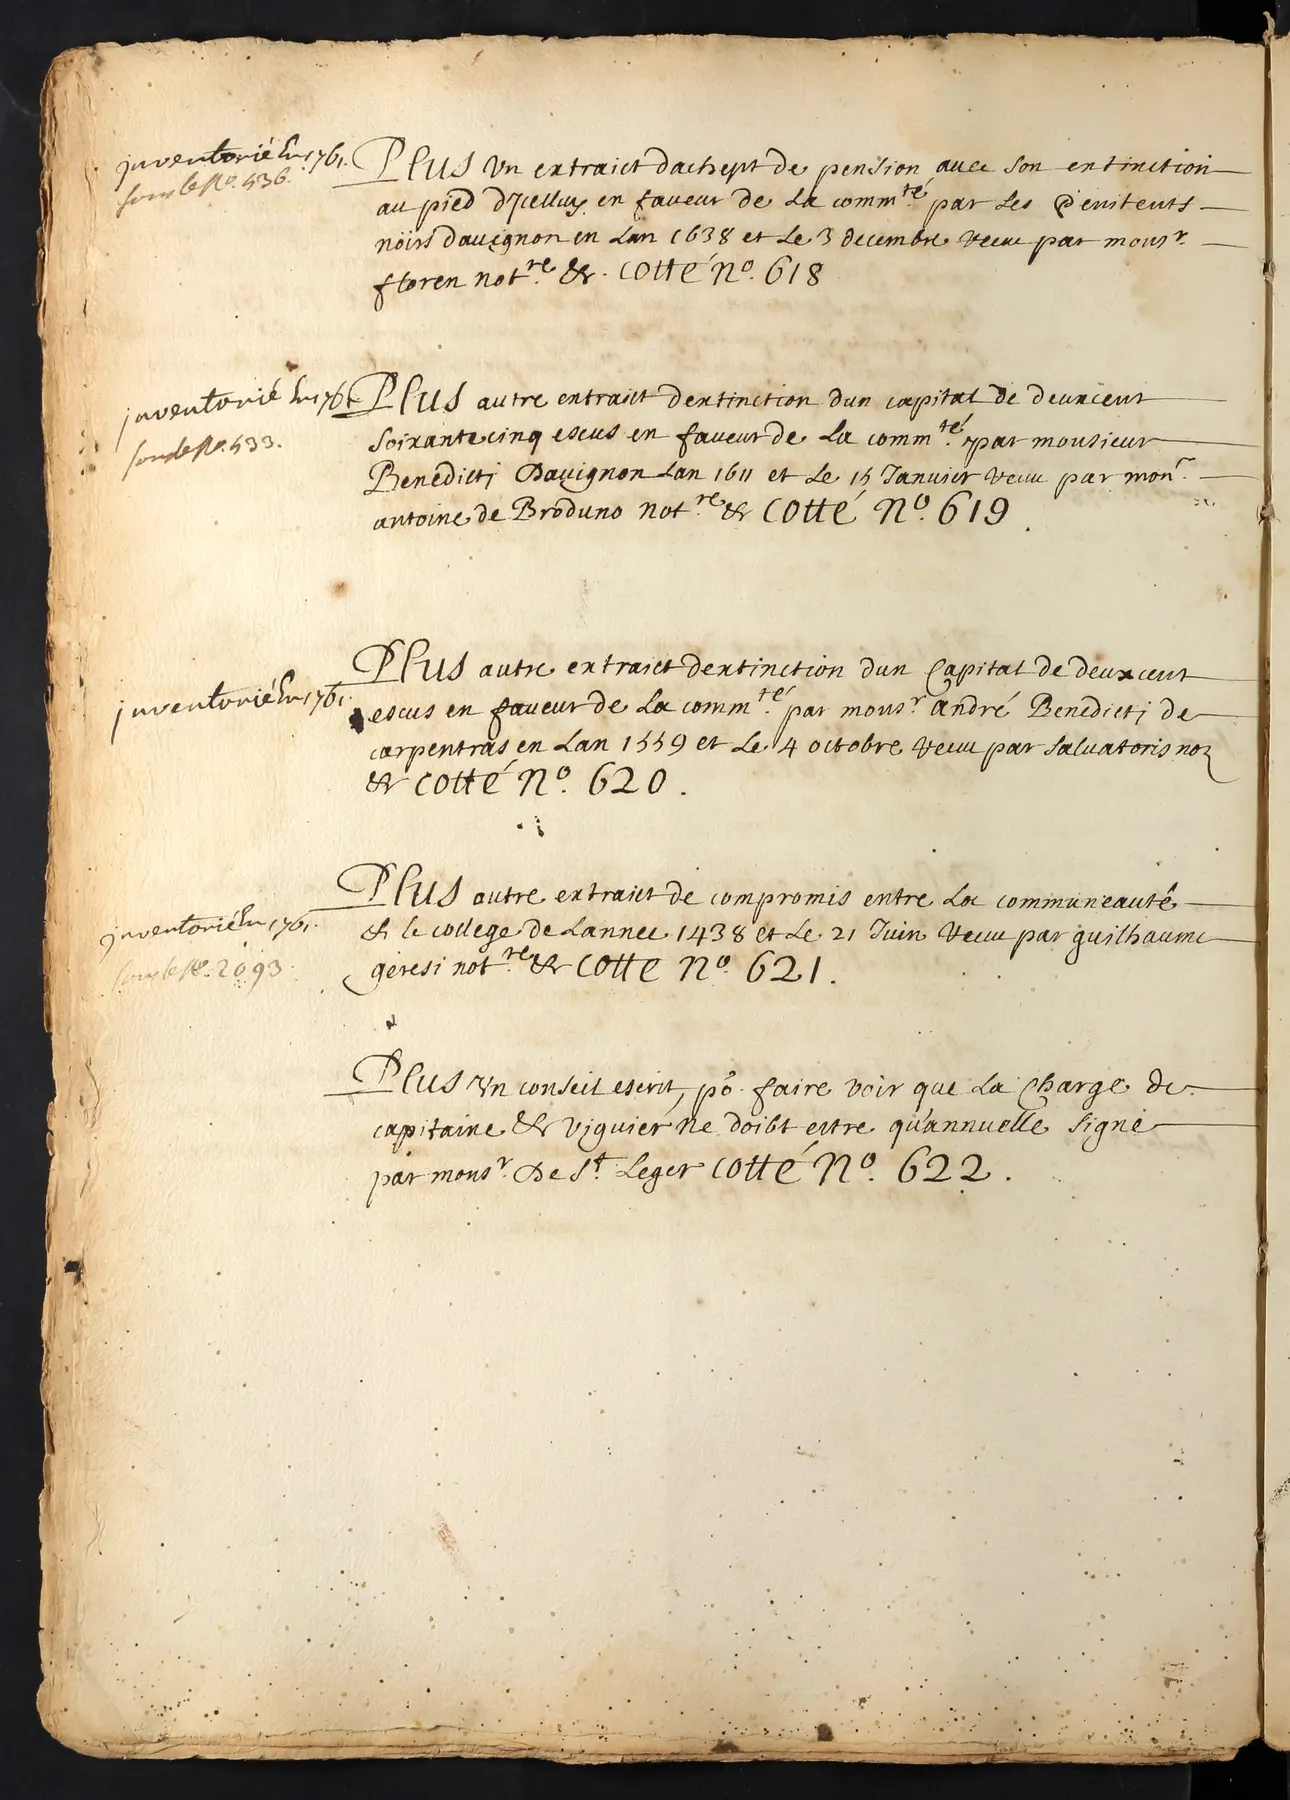 inventorié En 1761.
sous le No. 536.
Plus Un extraict dachept de pension avec son extinction
au pied d'Jcelluy en faveur de La comm.té par Les Penitents
noirs d'avignon en Lan 1638 et Le 3 decembre receu par monsr.
floren notre. & cotté No. 618
inventorié En 1761.
sous le No. 533.
Plus autre extraict dextinction dun capital de deuxcent
soixantecinq escus en faveur de La comm.té par monsieur
Benedicti Davignon Lan 1611 et Le 15 Janvier receu par monr.
antoine de Broduno notre. & cotté No. 619
inventorié En 1761.
Plus autre extraict dextinction dun Capital de deuxcent
escus en faveur de La comm.té par monsr. andré Benedicti de
carpentras en Lan 1559 et Le 4 octobre receu par salvatoris no
& cotté No. 620.
inventorié En 1761.
sous le No. 2093.
Plus autre extraict de compromis entre La communeauté
& le college de Lannee 1438 et Le 21 Juin receu par guilhaume
geresi notre. & cotte No. 621.
Plus Un conseil escrit, po. faire voir que La Charge de
capitaine & viguier ne doibt estre qu'annuelle signé
par monsr. De St. Leger cotté No. 622.